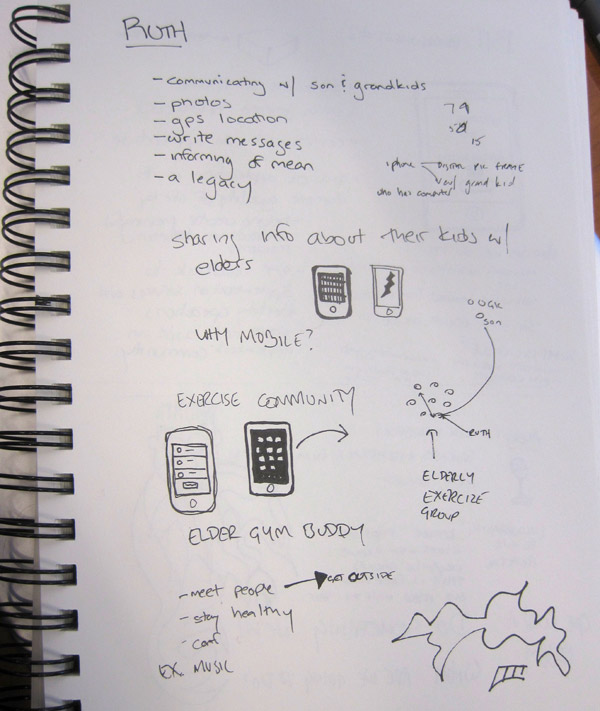 RUTH
- communicating w/ son & grandkids
- photos
- gps location
- write messages
- informing of mean
- a legacy
79
50
15
iphone DIGITAL PIC FRAME
grand kid
who has computer
sharing info about their kids w/
elders
WHY MOBILE?
GK
SON
EXERCISE COMMUNITY
RUTH
ELDERLY
EXERCIZE
GROUP
ELDER GYM BUDDY
- meet people GET OUTSIDE
- stay healthy
EX. MUSIC